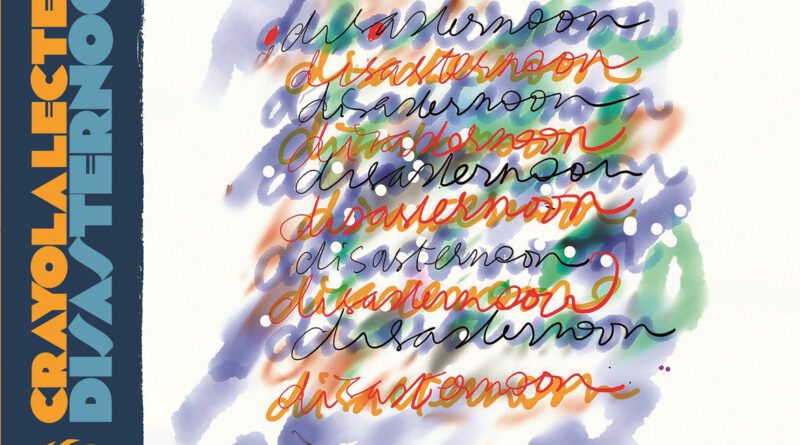 CRAYOLALECTE
DISASTERNOO
disasternoon
disasternoon
disasternoon
disasternoon
disasternoon
disasternoon
disasternoon
disasternoon
disasternoon
disasternoon